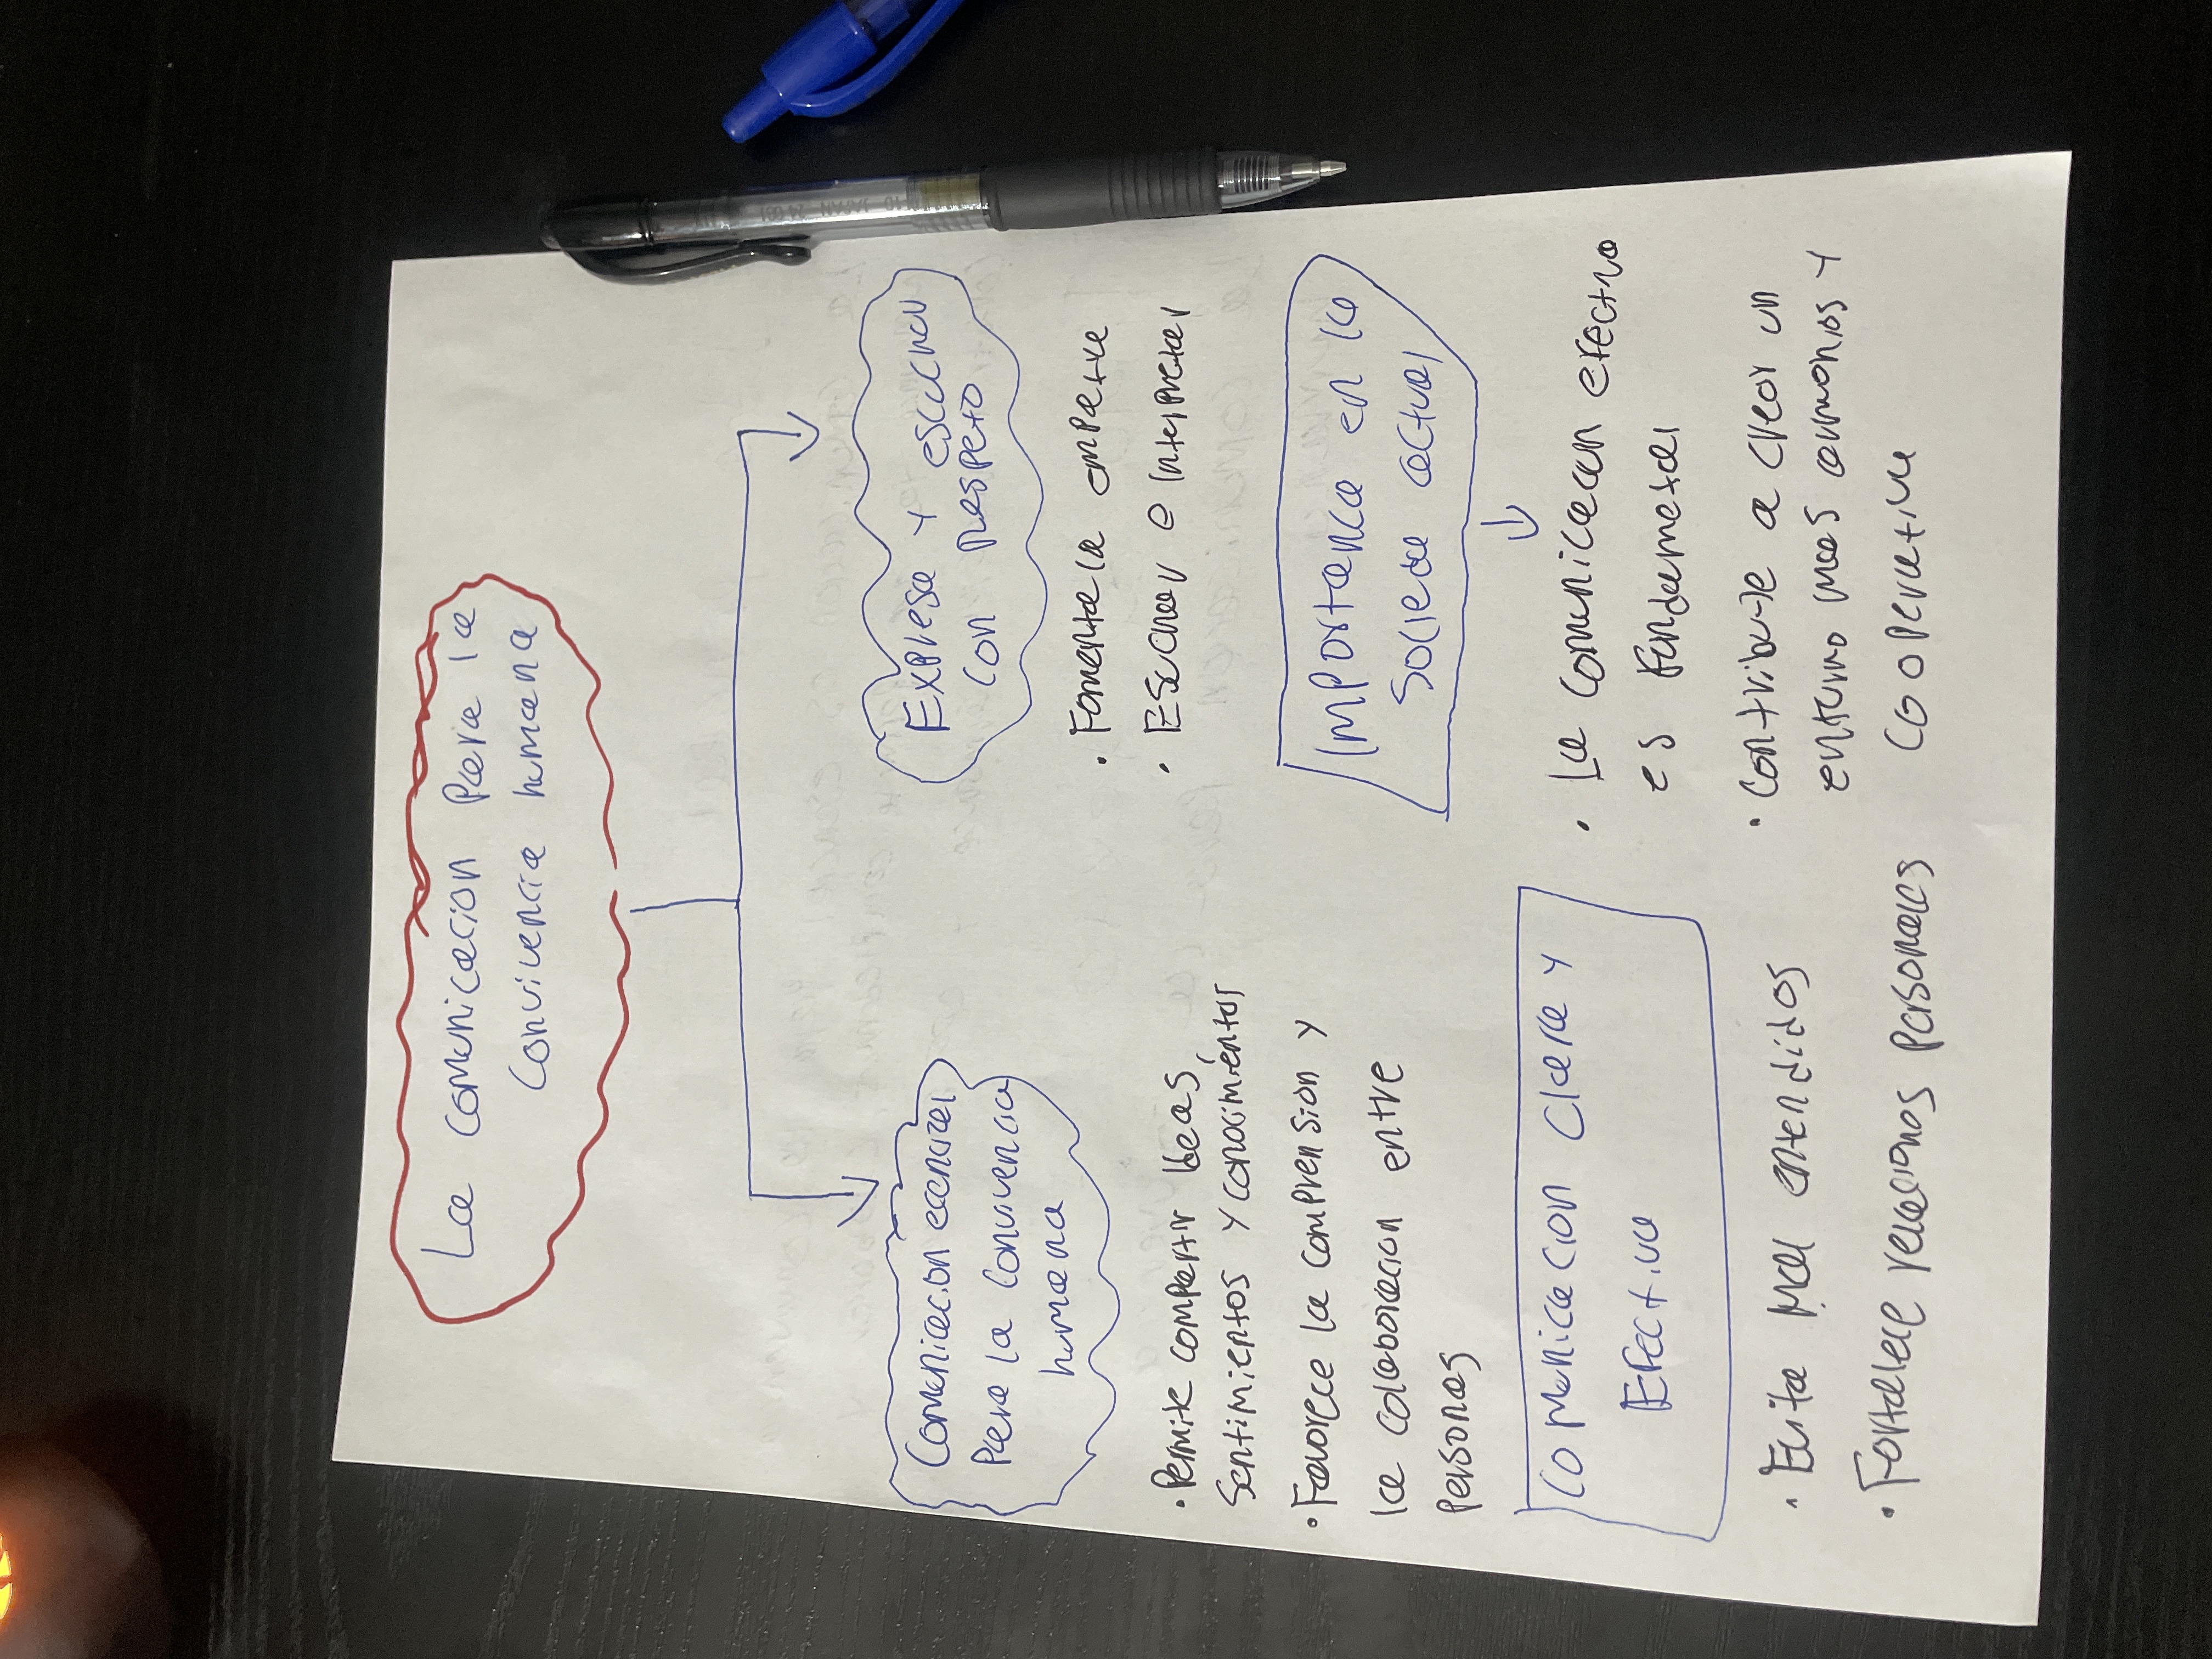 La comunicacion Para la
Convivencia humana
Comunicacion ecencial
Para la Convivencia
humana
• Permite compartir ideas,
sentimientos y conocimientos
• Favorece la comprension y
la colaboracion entre
personas
Comunicacion Clara y
Efectiva
• Evita mal entendidos
• Fortalece relaciones personales
Expresa y escuchar
con respeto
• Fomenta la empatia
• Escuchar e Interpretar
Importancia en la
Sociedad actual
• La comunicacion efectiva
es fundamental
• Contribuye a crear un
entorno mas armonios y
cooperativa